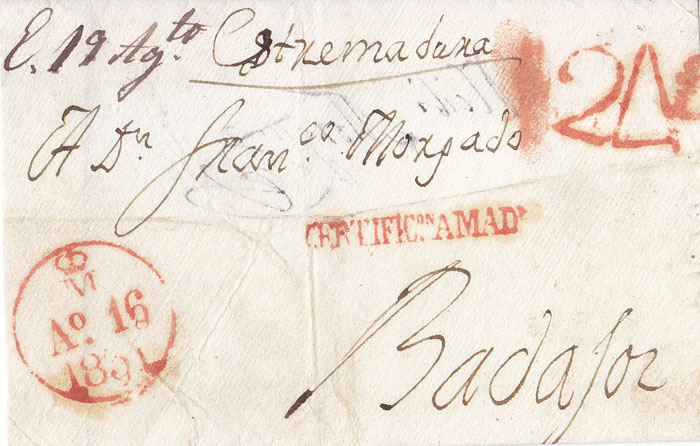 E. 19 Ag.to Estremadura
24
A Dn Fran.co Morgado
CERTIFIC.on AMAD
M
Ao. 16
Badajoz